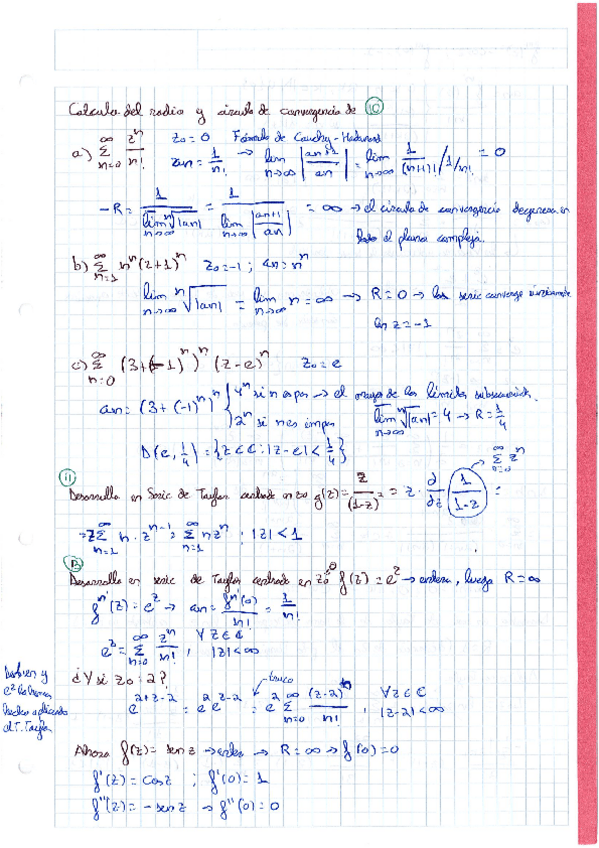 Calculo del radio y círculo de convergencia de (10)
a) ∞ Σ n=0 z^n/n!   z0=0   Fórmula de Cauchy-Hadamard
an = 1/n! → lim n→∞ |an+1/an| = lim n→∞ 1/(n+1)! / 1/n! = 0
- R = 1/(lim n→∞ n√|an|) = 1/(lim n→∞ |an+1/an|) = ∞ → el círculo de convergencia degenera en
todo el plano complejo.
b) ∞ Σ n=1 n^n (z+1)^n   z0=-1 ; an=n^n
lim n→∞ n√|an| = lim n→∞ n = ∞ → R=0 → la serie converge únicamente
en z=-1
c) ∞ Σ n=0 (3+(-1)^n)^n (z-e)^n   z0=e
an = (3+(-1)^n)^n { 4^n si n es par → el mayor de los límites
2^n si n es impar   lim n→∞ n√|an| = 4 → R = 1/4
D(e, 1/4) = {z∈ℂ : |z-e| < 1/4}
(11)   ∞ Σ n=0 z^n
Desarrollo en Serie de Taylor centrado en z=0 g(z) = z/(1-z)^2 = z · ∂/∂z (1/(1-z)) =
= z ∞ Σ n=1 n · z^(n-1) = ∞ Σ n=1 n z^n ; |z| < 1
(12)
Desarrollo en serie de Taylor centrado en z0=0 f(z) = e^z → entera, luego R=∞
f^n(z) = e^z → an = f^n(0)/n! = 1/n!
e^z = ∞ Σ n=0 z^n/n! , ∀z∈ℂ |z|<∞
¿Y si z0=2?   truco
e^(2+z-2) = e^2 e^(z-2) = e^2 ∞ Σ n=0 (z-2)^n/n! , ∀z∈ℂ |z-2|<∞
También y
aplicando
el T. Taylor
Ahora f(z) = sen z → entera → R=∞ → f(0)=0
f'(z) = cos z ; f'(0) = 1
f''(z) = -sen z → f''(0) = 0